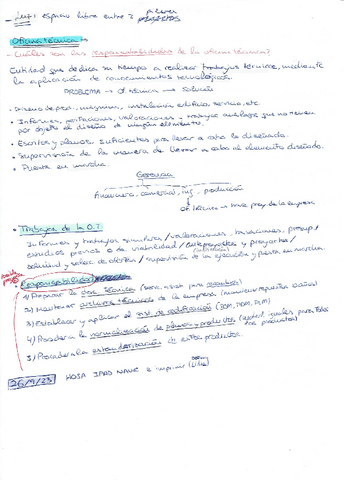 - Luz: espacio libre entre 2
Oficina técnica
- ¿Cuáles son las responsabilidades de la oficina técnica?
Entidad que dedica su tiempo a realizar trabajos técnicos, mediante
la aplicación de conocimientos tecnológicos.
PROBLEMA → O. técnica → Solución
- Diseño de pza, maquina, instalación, edificio, servicio, etc.
- Informes, peritaciones, valoraciones - trabajos que no tienen
por objeto el diseño de ningún elemento.
- Escritos y planos suficientes para llevar a cabo lo diseñado.
- Supervisión de la manera de llevar a cabo el elemento diseñado.
- Puesta en marcha.
Gerencia
Financiero, comercial, ing, producción
Of. técnica → hace proy. de la empresa
- Trabajos de la O.T.
Informes y trabajos /valoraciones, tasaciones, presup./
estudios previos o de viabilidad / anteproyectos y proyectos/
solicitud y selec. de ofertas / supervisión de la ejecución y puesta en marcha.
Responsabilidades
1) Preparar la
2) Mantener archivos técnicos de la empresa
3) Establecer y aplicar el sist. de codificación (BOM, PDM, PLM)
4) Proceder a la normalización de planos y productos
5) Proceder a la estandarización de estos productos.
26/9/23 HOJA imprimir